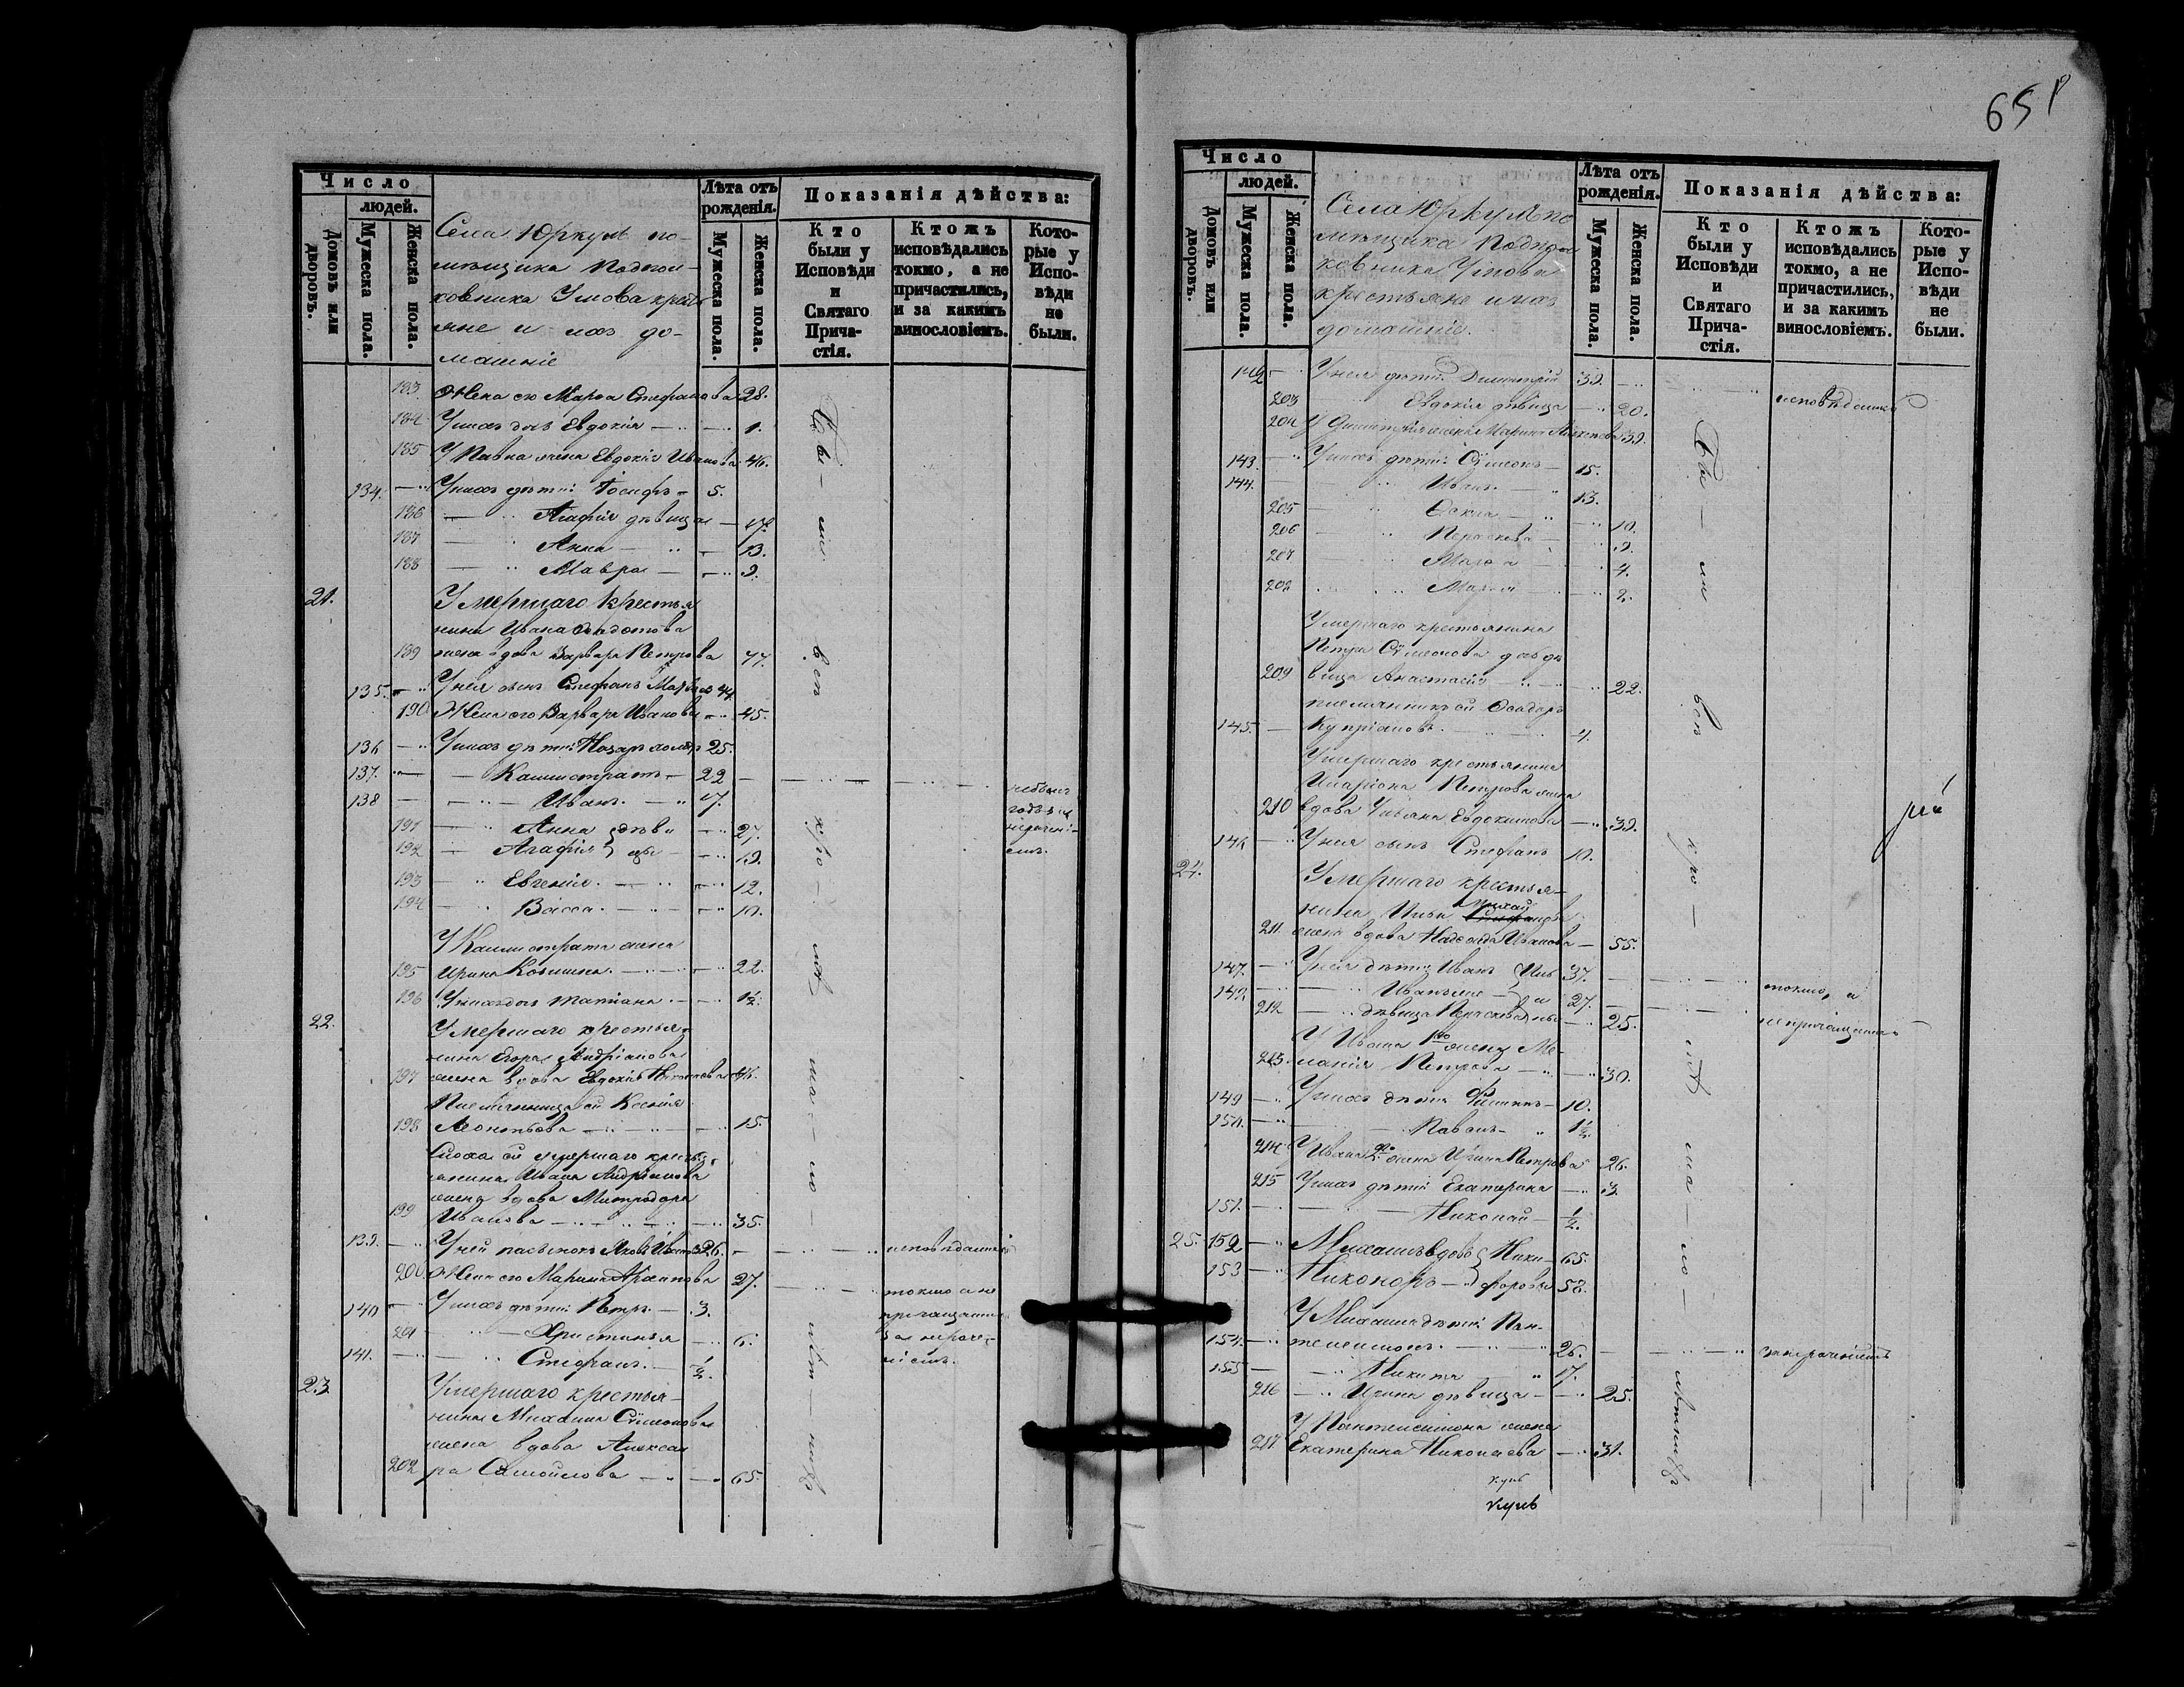 651
Число
людей.
Домовъ или дворовъ.
Мужеска пола.
Женска пола.
Села Юркуль по-
мѣщика Подпол-
ковника Умова кресть
яне и ихъ до-
машніе
Лѣта отъ рожденія.
Мужеска пола.
Женска пола.
Показанія дѣйства:
Кто были у Исповѣди и Святаго Прича- стія.
Ктожъ исповѣдались токмо, а не причастились, и за какимъ винословіемъ.
Кото- рые у Испо- вѣди не были.
183 Жена его Марѳа Стефанова 28.
184 У нихъ дочь Евдокія 1.
185 У Павла жена Евдокія Иванова 46.
134. У нихъ дѣти: Іосифъ 5.
186 Агафія дѣвица 17.
187 Анна 13.
188 Мавра 9.
21. Умершаго крестья
нина Ивана Ѳадотова
189 жена вдова Варвара Петрова 77.
135. У нея сынъ Стефанъ 44
190 Жена его Варвара Иванова 45.
136 У нихъ дѣти: Назаръ холостъ 25.
137. Каллистратъ 22
138 Иванъ 7.
191 Анна дѣви 27.
192 Агафія цы 19.
193 Евгенія 12.
194 Васса 10.
У Каллистрата жена
195 Ирина Козмина 22.
196 У нихъ дочь Татіана 1½.
22. Умершаго крестья-
нина Егора Андріанова
197 жена вдова Евдокія 46.
Племянница ей Ксенія
198 Леонтьева 15.
Сноха ей умершаго кресть-
янина Ивана Андріанова
жена вдова Митродора
199 Иванова 35.
139. У ней пасынокъ Яковъ 26. исповѣдались
200 Жена его Марина Архипова 27. токмо а не
140 У нихъ дѣти: Петръ 3. причащались
201 Христинья 6. за нераче-
141. Стефанъ ½. ніемъ.
23. Умершаго крестья-
нина Михаила Сѵмеонова
жена вдова Александ
202 ра Самойлова 65.
Бы - ли всѣ кро - мѣ
Число
людей.
Домовъ или дворовъ.
Мужеска пола.
Женска пола.
Села Юркуль по
мѣщика Подпол
ковника Умова
крестьяне и ихъ
домашніе.
Лѣта отъ рожденія.
Мужеска пола.
Женска пола.
Показанія дѣйства:
Кто были у Исповѣди и Святаго Прича- стія.
Ктожъ исповѣдались токмо, а не причастились, и за какимъ винословіемъ.
Кото- рые у Испо- вѣди не были.
142 У нея дѣти: Димитрій 39. исповѣдались
203 Евдокія дѣвица 20.
204 У Димитрія жена Марина 39.
143. У нихъ дѣти: Сѵмеонъ 15.
144. Иванъ 13.
205 Ѳекла 10.
206 Параскева 9.
207 Марѳа 4.
208 Марія 2.
Умершаго крестьянина
Петра Сѵмеонова дочь дѣ
209 вица Анастасія 22.
племянникъ ей Ѳеодоръ
145. Купріановъ 4.
Умершаго крестьянина
Иларіона Петрова жена
210 вдова Татьяна Евдокимова 39.
146 У нея сынъ Стефанъ 10.
24. Умершаго крестья-
нина Ильи
211. жена вдова Надежда Иванова 55.
147. У нея дѣти: Иванъ 37. токмо, а
148. Иванъ 27. не причащались
212 дѣвица Параскева 25.
У Ивана 1го жена Ме-
213. ланія Петрова 30.
149 У нихъ дѣти Филиппъ 10.
150. Павелъ 1½.
214. У Ивана 2го жена Ирина Петрова 26.
215 У нихъ дѣти Екатерина 3.
151. Николай ½.
25. 152 Михаилъ вдовъ Ники- 65.
153 Никоноръ форовы 58.
У Михаила дѣти: Пан-
154. телеимонъ 26. за нераченіемъ
155 Никита 17.
216 Ирина дѣвица 25.
У Пантелеимона жена
217. Екатерина Николаева 31.
Бы - ли всѣ кро - мѣ
рей